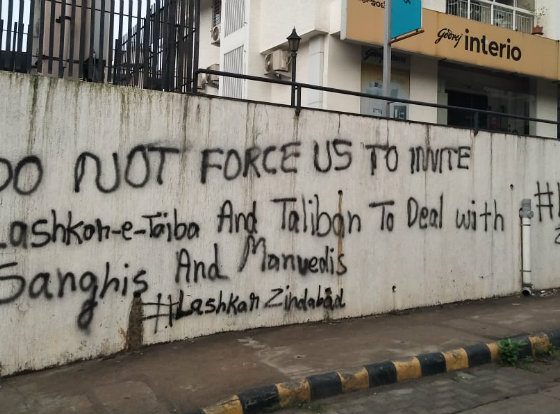 Godrej interio
DO NOT FORCE US TO INVITE
Lashkar-e-Taiba And Taliban To Deal with
Sanghis And Manvedis
#Lashkar Zindabad
#